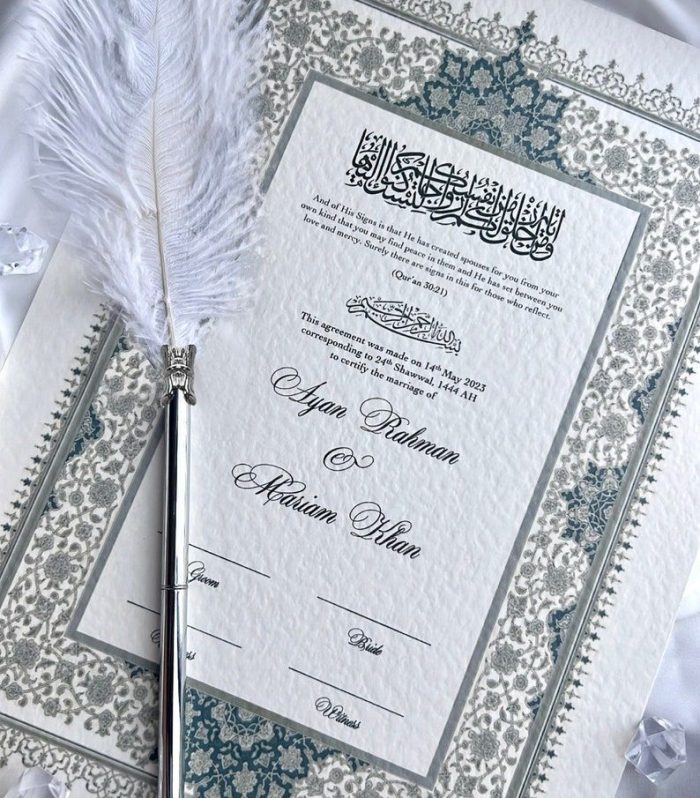 ومن آياته أن خلق لكم من أنفسكم أزواجا لتسكنوا إليها
And of His Signs is that He has created spouses for you from your
own kind that you may find peace in them and He has set between you
love and mercy. Surely there are signs in this for those who reflect.
(Qur'an 30:21)
بسم الله الرحمن الرحيم
This agreement was made on 14th May 2023
corresponding to 24th Shawwal, 1444 AH
to certify the marriage of
Ayan Rahman
&
Mariam Khan
Groom
Bride
Witness